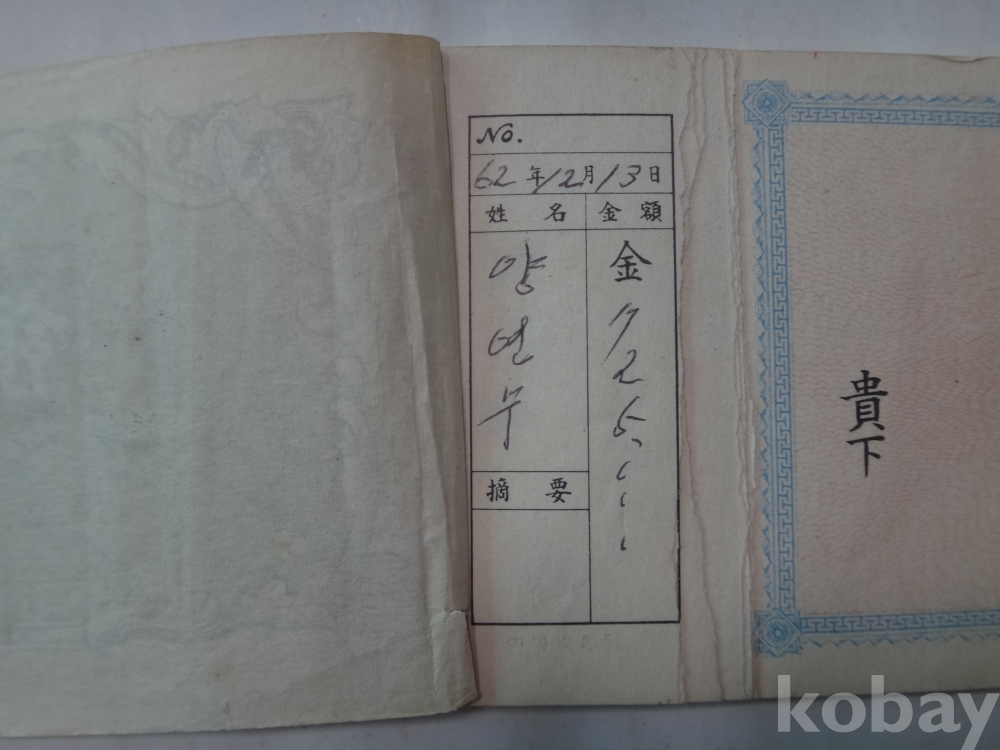 No.
62年12月13日
姓名 金額
양연무
金 725,
摘要
貴下
kobay